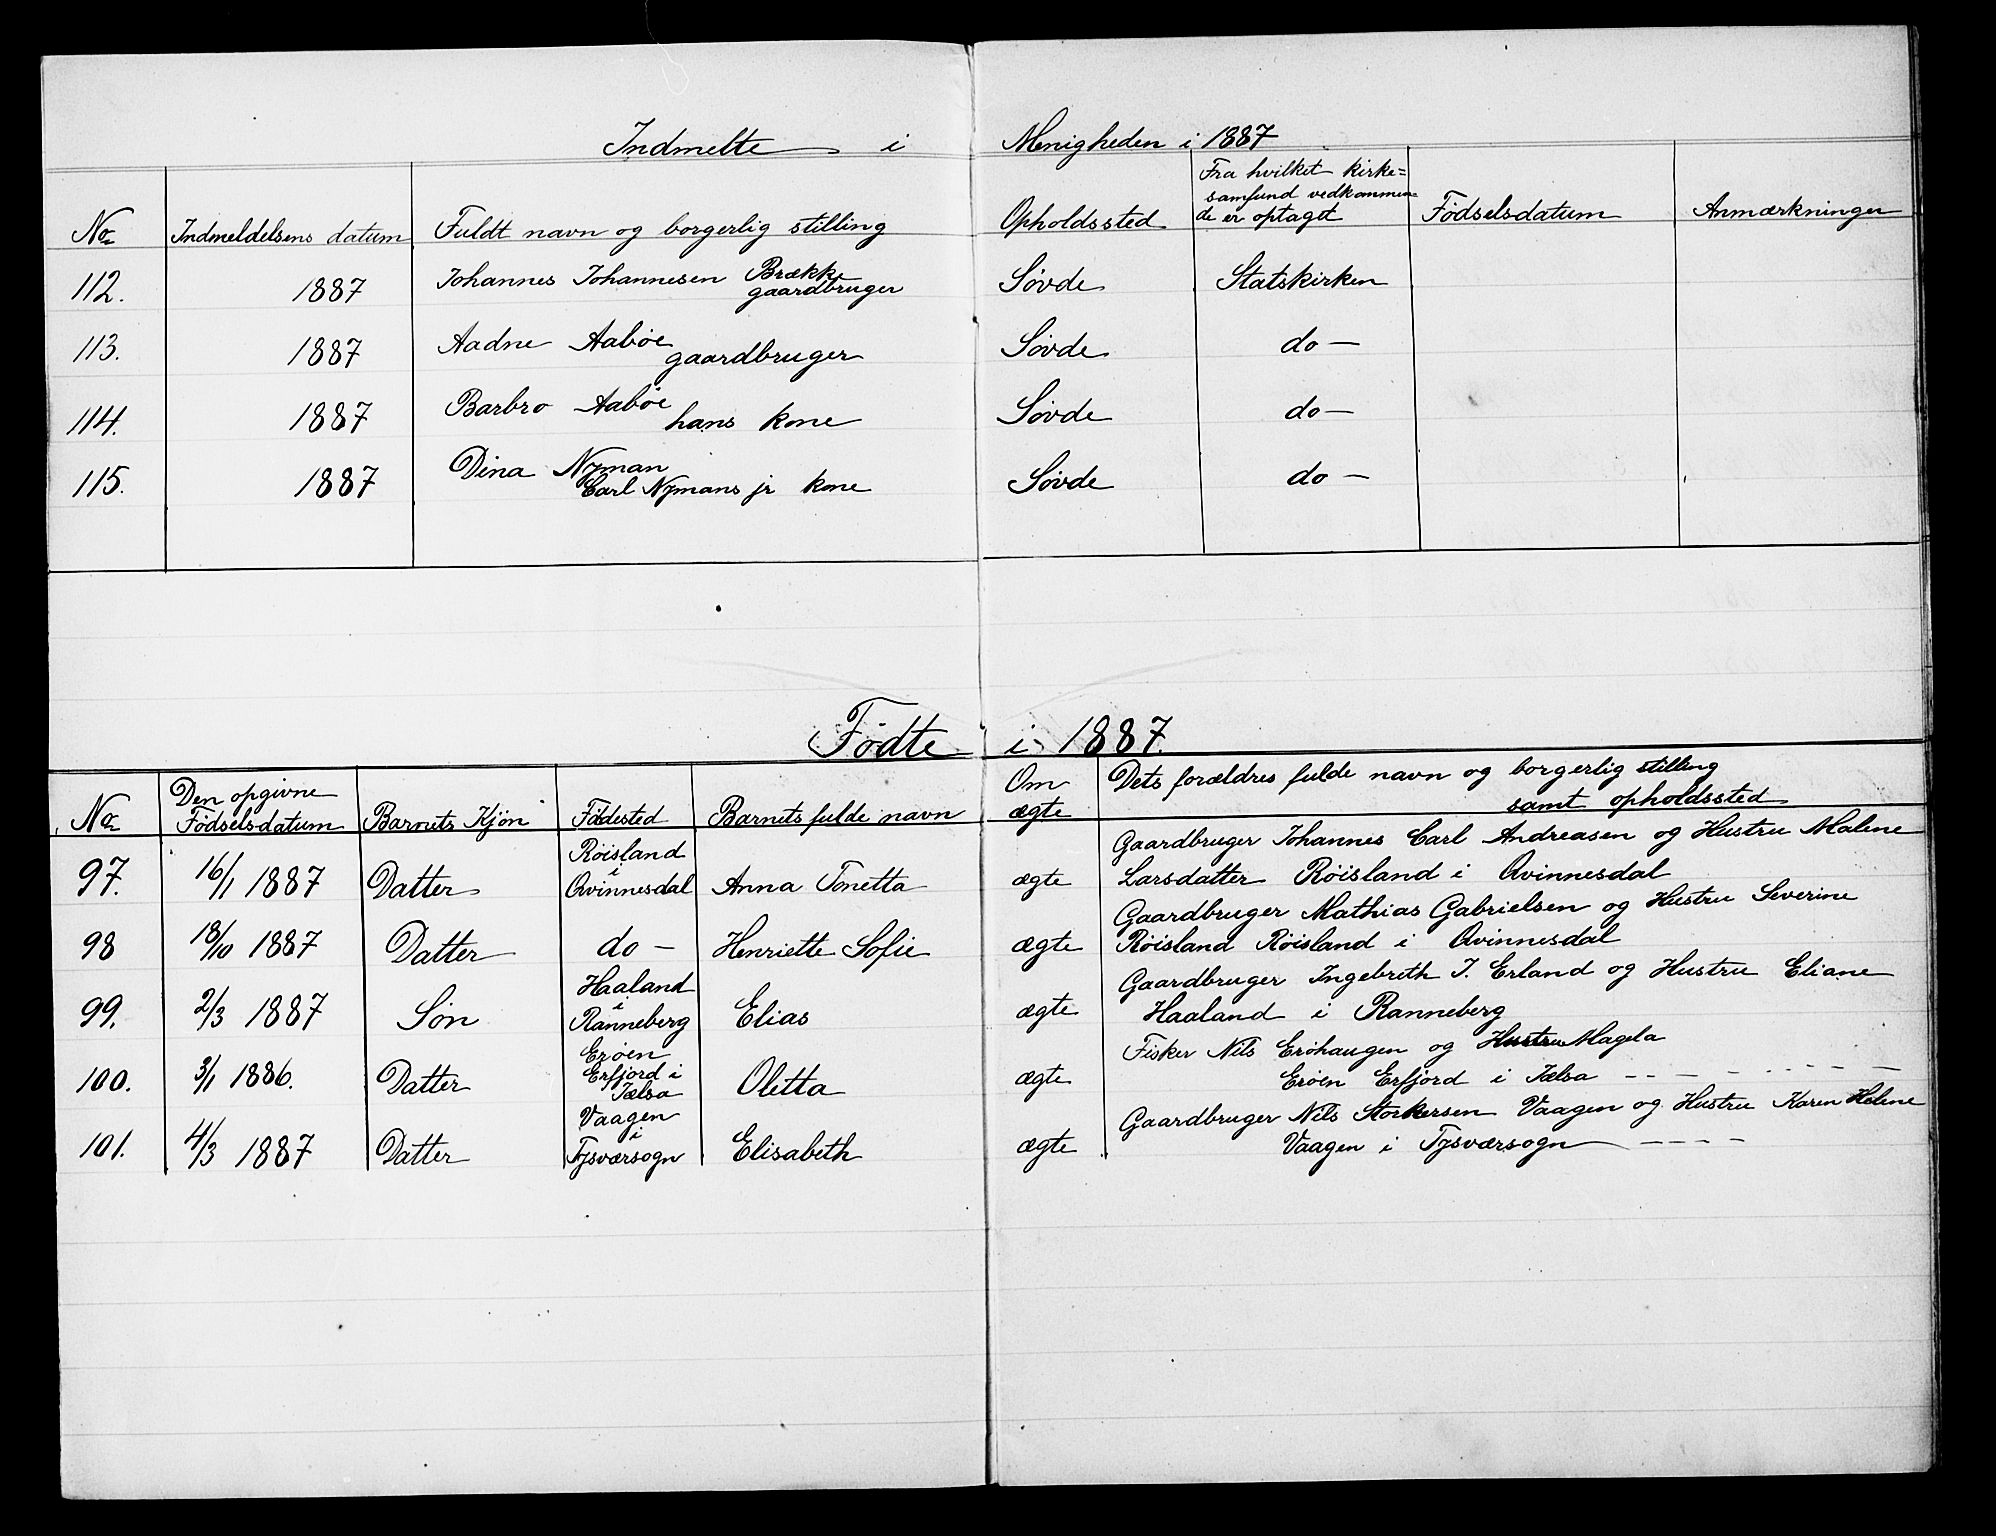 Indmelte i Menigheden i 1887
No Indmeldelsens datum Fuldt navn og borgerlig stilling Opholdssted Fra hvilket kirke=
samfund vedkommen=
de er optaget Fødselsdatum Anmærkninger
112. 1887 Johannes Johannesen Brække
gaardbruger Søvde Statskirken
113. 1887 Aadne Aabøe
gaardbruger Søvde do —
114. 1887 Barbro Aabøe
hans kone Søvde do —
115. 1887 Dina Nyman
Carl Nymans jr kone Søvde do —
Fødte i 1887.
No Den opgivne
Fødselsdatum Barnets Kjøn Fødested Barnets fulde navn Om
ægte Dets forældres fulde navn og borgerlig stilling
samt opholdssted
97. 16/1 1887 Datter Røisland
i
Qvinnesdal Anna Tonetta ægte Gaardbruger Johannes Carl Andreasen og Hustru Malene
Larsdatter Røisland i Qvinnesdal
98 18/10 1887 Datter do — Henriette Sofie ægte Gaardbruger Mathias Gabrielsen og Hustru Severine
Røisland Røisland i Qvinnesdal
99. 2/3 1887 Søn Haaland
i
Ranneberg Elias ægte Gaardbruger Ingebrith I. Erland og Hustru Eliane
Haaland i Ranneberg
100. 3/1 1886. Datter Erøen
Erfjord i
Jælsa Oletta ægte Fisker Nils Erøhaugen og Hustru Magela
Erøen Erfjord i Jælsa
101. 4/3 1887 Datter Vaagen
i
Tysværsogn Elisabeth ægte Gaardbruger Nils Storkersen Vaagen og Hustru Karen Helene
Vaagen i Tysværsogn